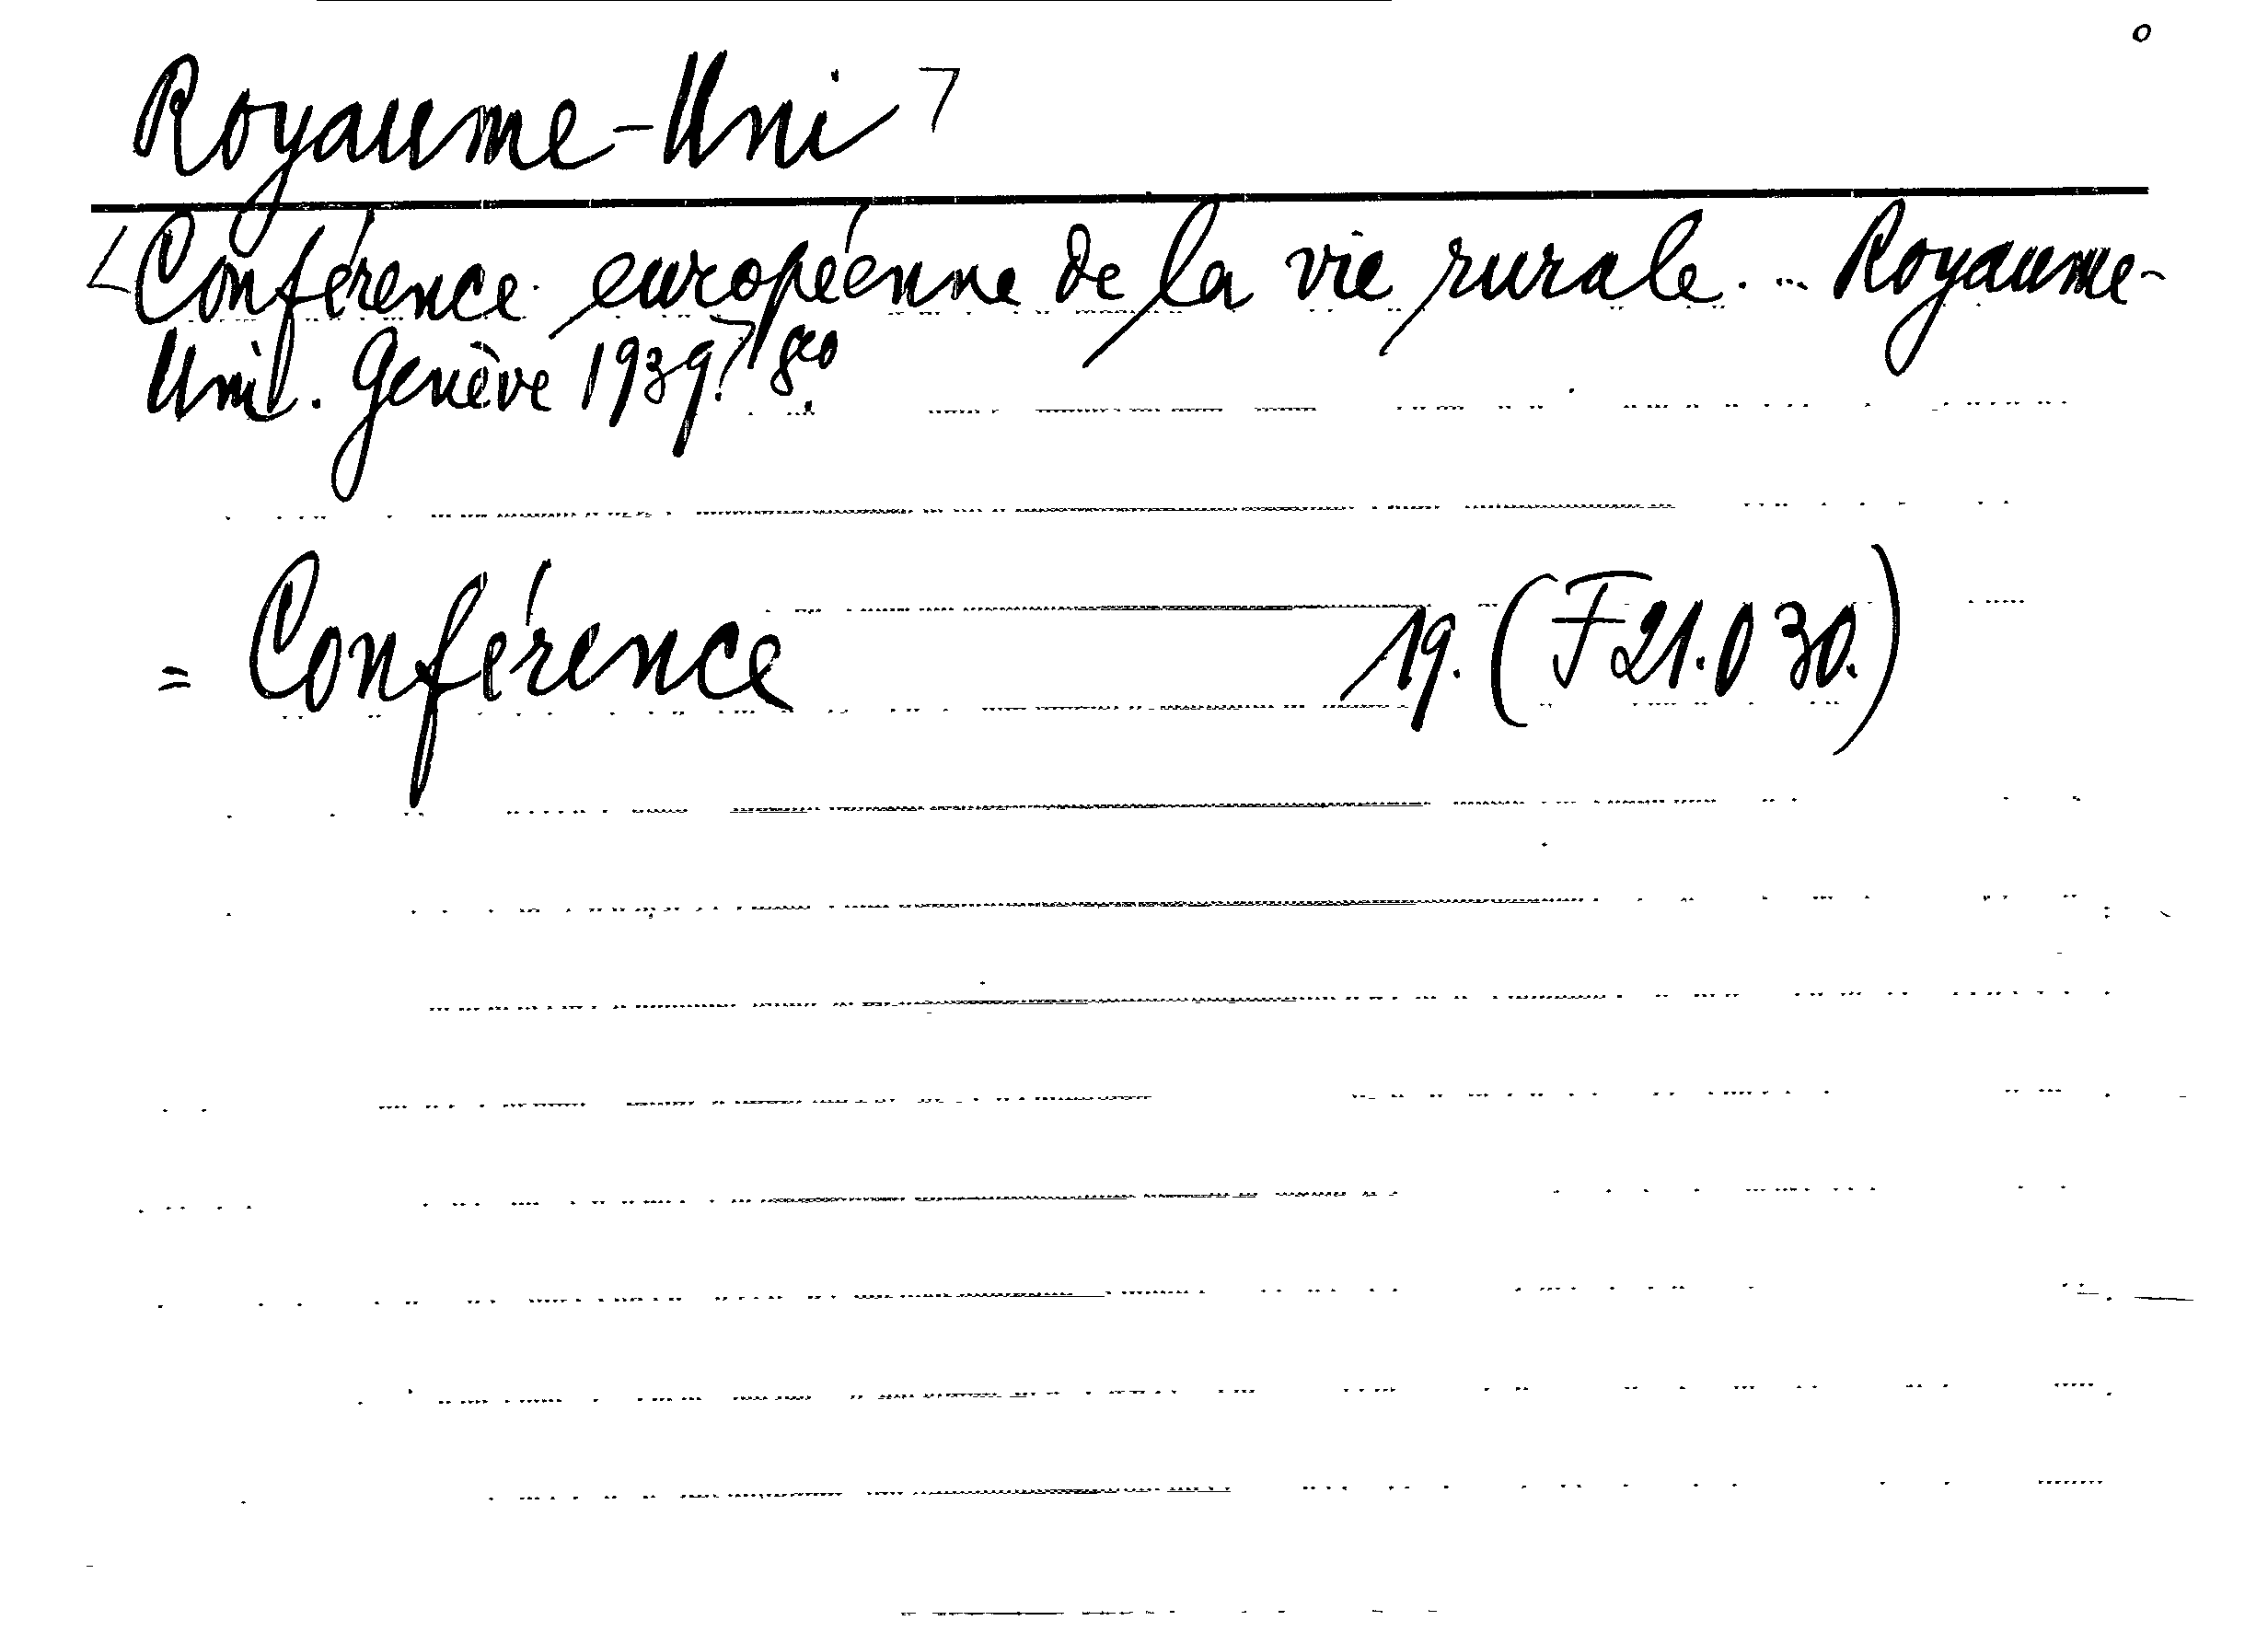 Royaume-Uni
Conférence européenne de la vie rurale... Royaume-
Uni. Genève 1939. 8vo.
= Conférence 19. (F 21.030.)